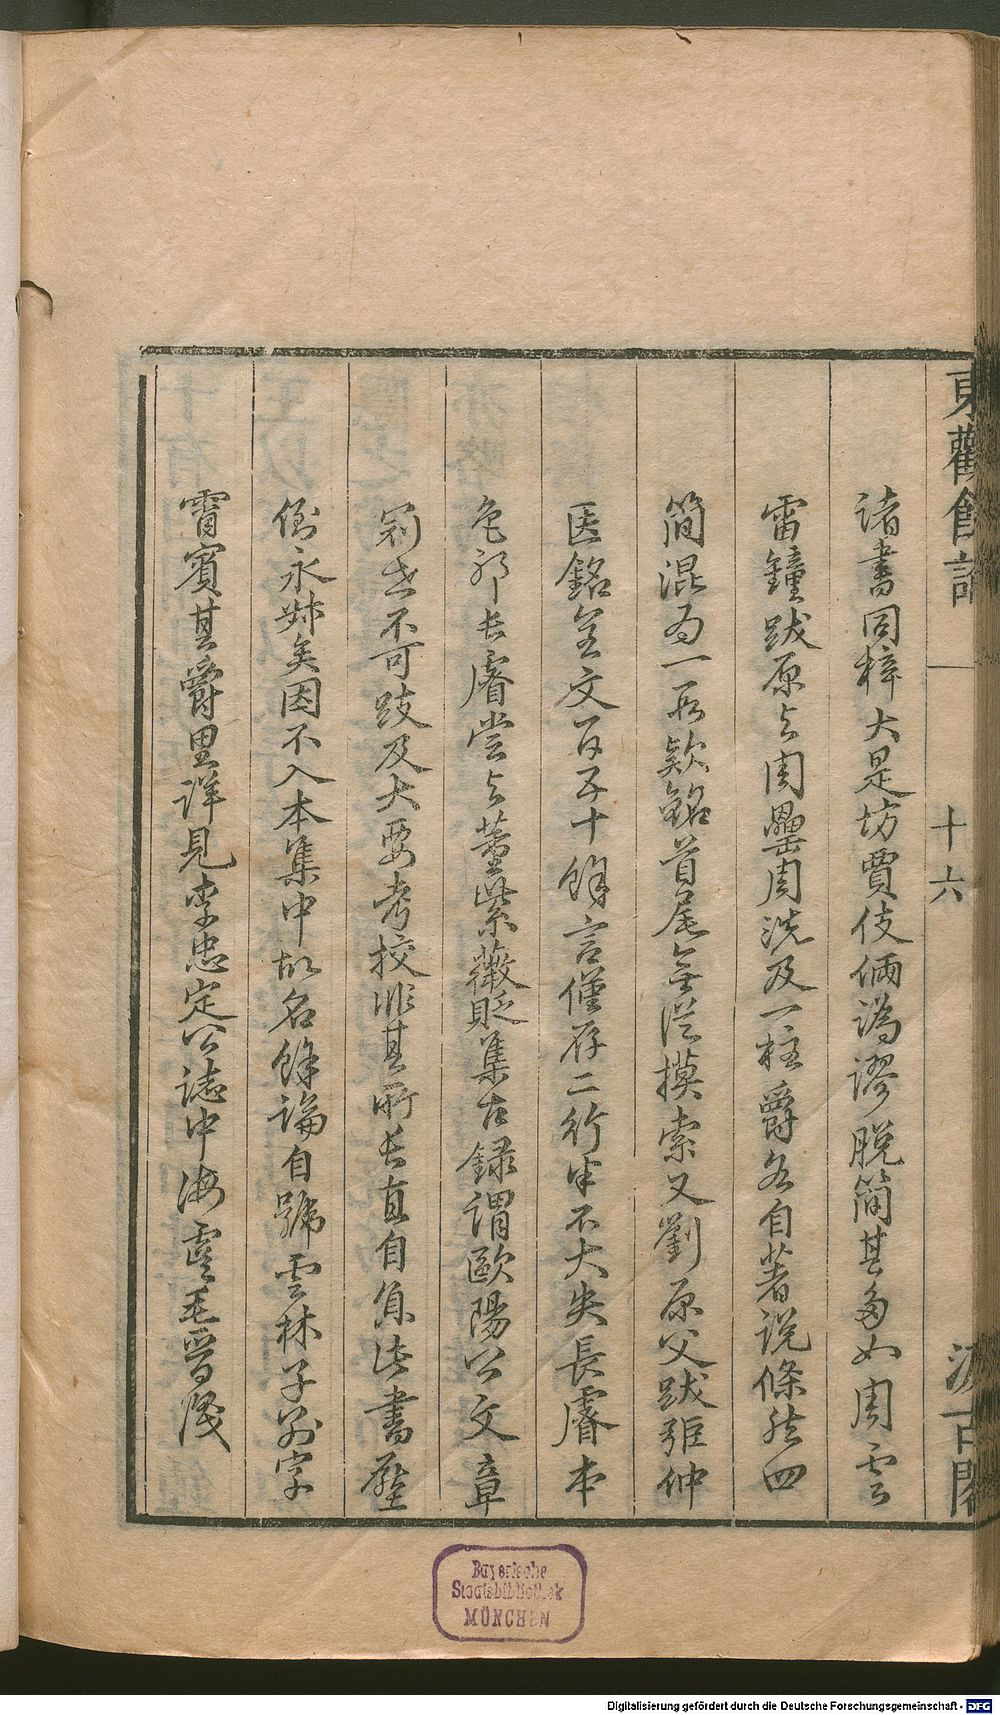 東觀餘論
十六
汲古閣
諸書同梓大是坊賈伎倆譌謬脫簡甚多如周雲
雷鐘跋原與周罍周洗及一柱爵各自著說條然四
簡混為一段款銘首尾無從摸索又劉原父跋張仲
匜銘全文百五十餘言僅存二行半不大失長睿本
色邪長睿嘗與董紫薇貶集古錄謂歐陽公文章
冠世不可跂及大要考挍非其所長直自負此書壓
倒永叔矣因不入本集中故名餘論自號雲林子別字
霄賓其爵里詳見李忠定公誌中海虞毛晉識
Bayerische
Staatsbibliothek
MÜNCHEN
Digitalisierung gefördert durch die Deutsche Forschungsgemeinschaft - DFG